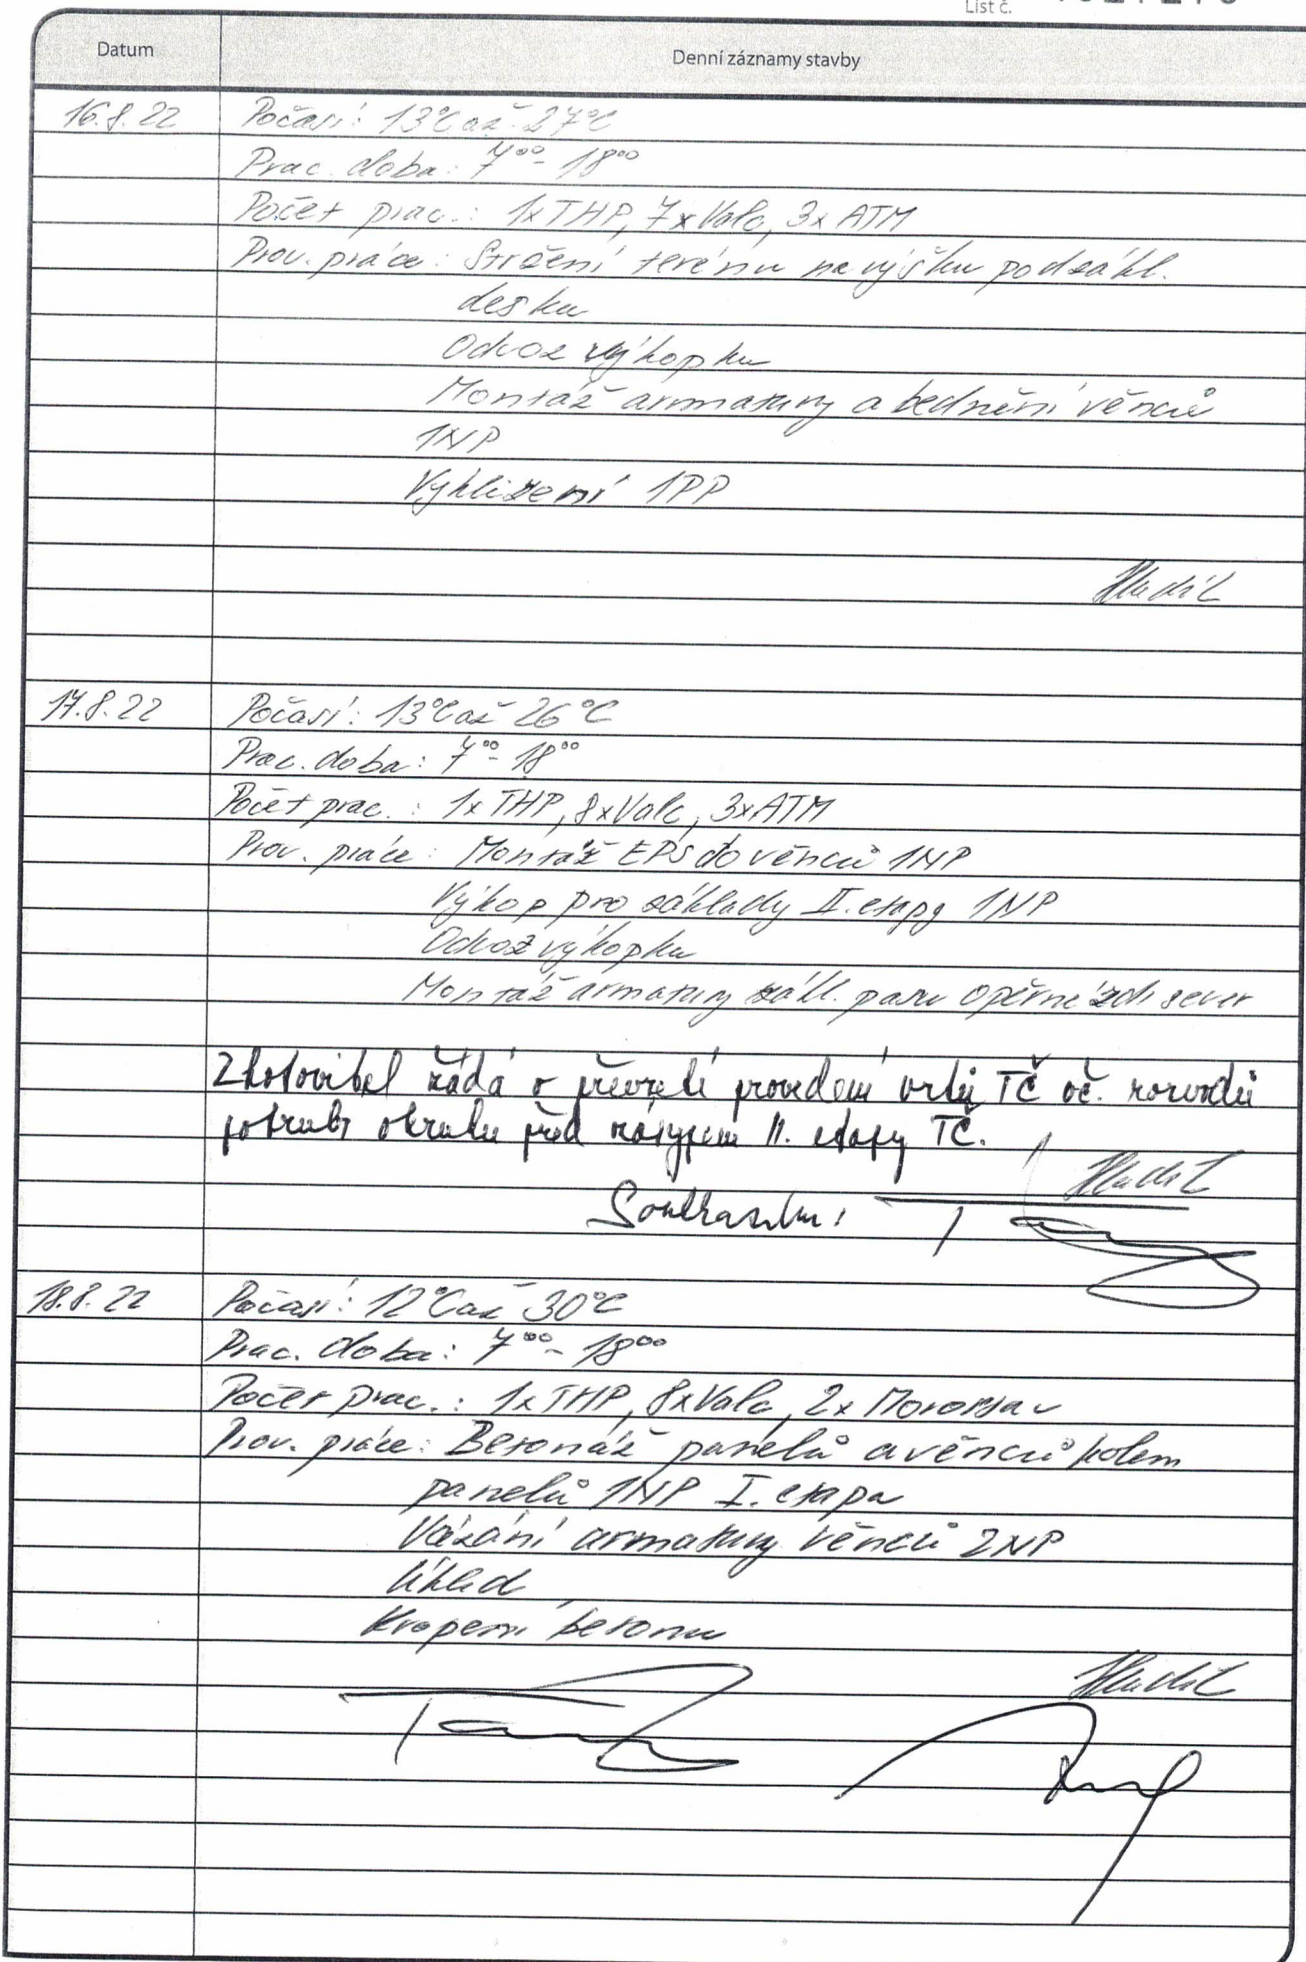 List č.
Datum
Denní záznamy stavby
16.8.22 Počasí: 13°C až 27°C
Prac. doba: 7⁰⁰- 18⁰⁰
Počet prac.: 1x THP, 7x Valc, 3x ATM
Prov. práce: Stržení terénu na výšku pod zákl.
desku
Odvoz výkopku
Montáž armatury a bednění věnců
1NP
Vyklizení 1PP
Hladil
17.8.22 Počasí: 13°C až 26°C
Prac. doba: 7⁰⁰- 18⁰⁰
Počet prac.: 1x THP, 8x Valc, 3x ATM
Prov. práce: Montáž EPS do věnců 1NP
Výkop pro základy II. etapy 1NP
Odvoz výkopku
Montáž armatury zákl. pasu opěrné zdi sever
Zhotovitel žádá o převzetí provedení vrtů TČ vč. rozvodů
potrubí okruhu před zásypem II. etapy TČ.
Hladil
Souhlasím:
18.8.22 Počasí: 12°C až 30°C
Prac. doba: 7⁰⁰- 18⁰⁰
Počet prac.: 1x THP, 8x Valc, 2x
Prov. práce: Betonáž panelů a věnců kolem
panelů 1NP I. etapa
Vázání armatury věnců 2NP
Úklid
Kropení betonu
Hladil